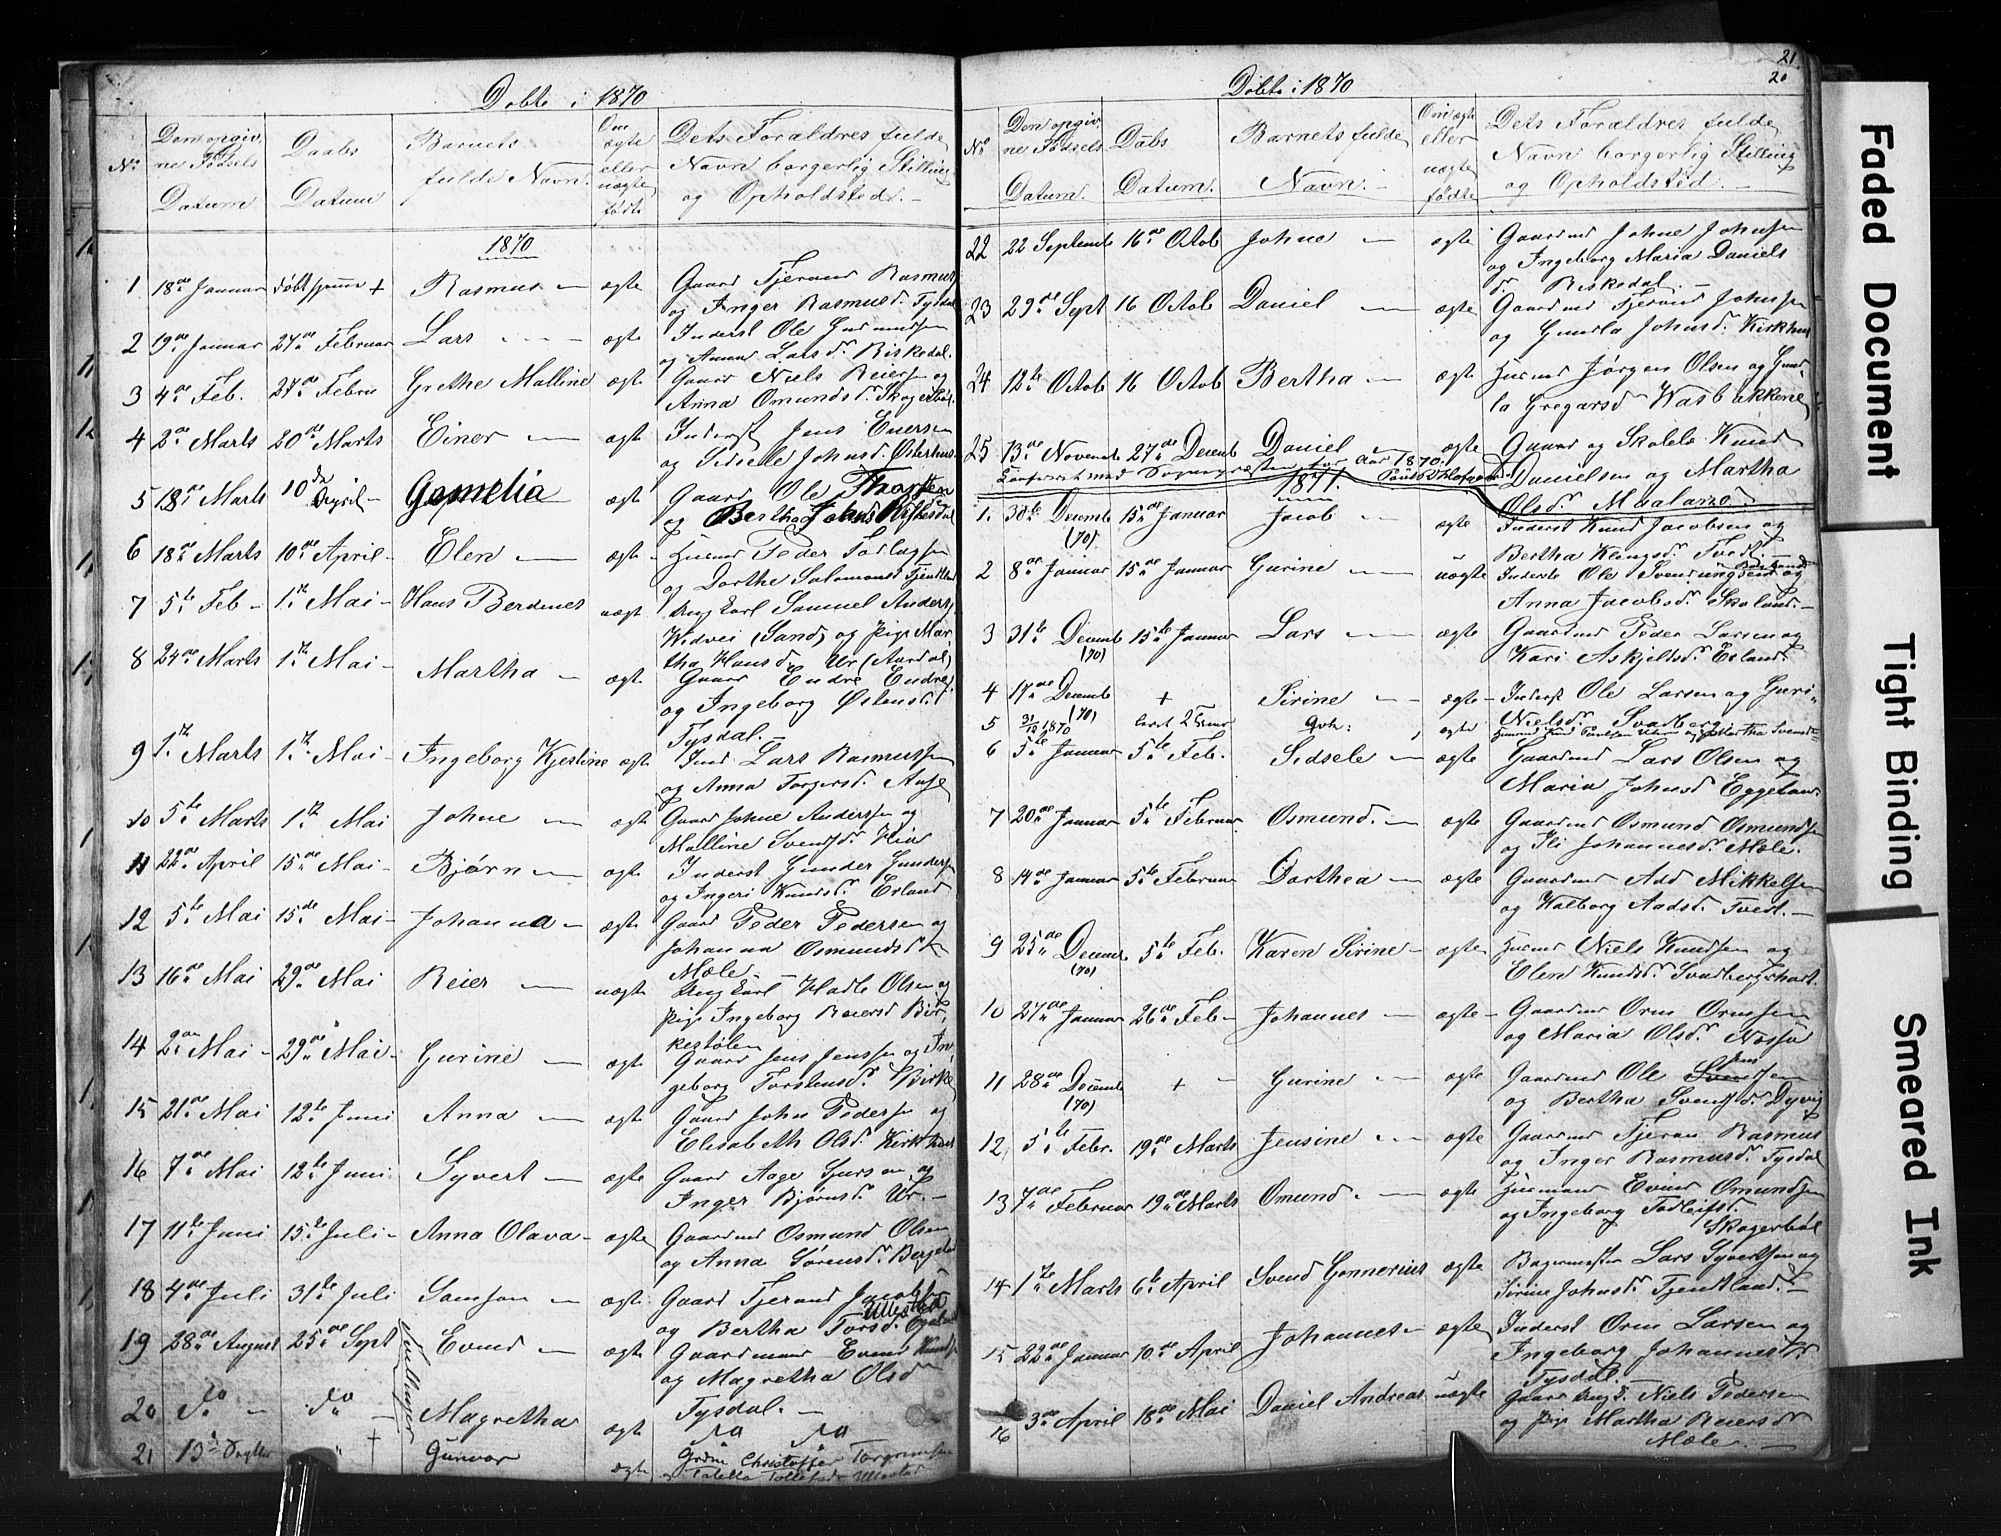 Døbte i 1870
No
Den opgiv,
ne Fødsels
Datum
Daabs
Datum
Barnets
fulde Navn.
Om
ægte
eller
uægte
født
Dets Forældres fulde
Navn borgerlig Stilling
og Opholdsted.
1870
1 18de Januar døbt hjemme + Rasmus — ægte Gaard Tjerand Rasmus,
og Inger Rasmusd. Tysdal
2 19de Januar 27de Februar Lars — ægte Inderst Ole Gudmundsen
og Anna Larsdr. Biskedal.
3 4de Feb. 27de Febru Grethe Malline ægte Gaard Niels Reiersen og
Anna Omundsd. Skogerbøl.
4 2de Marts 20de Marts Einer — ægte Inderst Jens Enersen
og Sidsele Johnsd. Østerhus
5 18de Marts 10de April — Gamelia ægte Gaard Ole
og Bertha
6 18de Marts 10de April — Elen — ægte — Husmd Peder Todlagsen
og Dorthe Salomonsd Fjentland
7 5te Feb — 1te Mai — Hans Berdines uægt Ung Carl Samuel Anders,
Wedvei (Sand) og Pige Mar,
tha Hansd. Ur (Aardal)
8 24de Marts 1te Mai — Martha — ægte Gaard Endre Endres,
og Ingeborg Østensd.
Tysdal.—
9 1te Marts 1te Mai — Ingeborg Kjestine ægte Ind Lars Rasmussen
og Anna Torgersd. Auge
10 5te Marts 1te Mai Johne — ægt Gaard Johne Anderssen og
Malline Svensdr. Hia
11 22de April 15de Mai — Bjørn — ægte Inderst Gunder Gundersen
og Ingeri Knudsdr. Erland
12 5te Mai 15de Mai — Johanna — ægte Gaard Peder Pedersen og
Johanna Osmundsdr
Mæle.—
13 16de Mai 29de Mai Reier — uægte Ung Carl Hadle Olsen og
Pige Ingeborg Reiersd Bir,
kestølen
14 2den Mai — 29de Mai — Gurine — ægte Gaard Jens Jenssen og In,
geborg Torstensdr. Birke,
15 21de Mai 12te Juni Anna — ægte Gaard John Pedersen og
Elisabeth Olsdr. Kirkhus
16 7de Mai 12te Juni Syvert — ægte Gaard Aage Sjursen og
Inger Bjørnsdr. Ur.—
17 11te Juni 15te Juli — Anna Olava — ægte Gaardmd Osmund Olsen
og Anna Sørensdr. Bergeland
18 4de Juli 31te Juli Samson — ægte Gaard Tjerand Jacobsen
og Bertha Torsd. Ullestad
19 28de August 25de Sept Evend — ægte Gaardmand Evend Knuds,
og Magretha Olsd
Tysdal.—
Tvillinger
20 do — do — Magretha ægte do do
21 13de Septbr " † Gunvor ægte Grdm Christoffer Torgrimsen
Tollefsdr Ullestad
21.
20
Døbte i 1870
No
Den opgiv,
ne Fødsels
Datum.
Dåbs
Datum.
Barnets fulde
Navn.—
Om ægte
eller
uægte
fødte
Dets Forældres fulde
Navn borgerlig Stilling
og Opholdsted.—
22 22 Septemb 16de Octob Johne — ægte Gaardmd Johne Johnsen
og Ingeborg Maria Daniels
dr. Biskedal.—
23 29de Sept 16 Octob Daniel — ægte Gaardmd Tjerand Johnsen
og Gunila Johnsd. Kirkhus
24 12te Octob 16 Octob Bertha — ægte Husmd Jørgen Olsen og Gun,
la Gregarsd Wasbakkene
25 13de Novemb 27de Decemb Daniel — ægte Gaard og Skolele Knud
Danielsen og Martha
Olsd. Maaland.
Conf med Sogneprestens for Aar 1870.
1871
1. 30te Decemb (70) 15de Januar Jacob — ægte Inderst Knud Jacobsen og
Bertha Elingsd. Tvedt.—
2 8de Januar 15de Januar Gurine — uægte Inderste Ole Svendungsen og
Anna Jacobsdr. Skoland.—
3 31te Decemb (70) 15te Januar Lars — ægte Gaardmd Peder Larsen og
Kari Askjeldsdr. Erland.
4 17de Decemb (70) + Sirine — ægte — Inderst Ole Larsen og Guri
Nielsdr. Svadberg
5 31/12 1870 Gvh: ægte Husmd Knud Poulsen og Martha Svensdr
6 5te Januar 5te Feb. Sidsele — ægte Gaardmd Lars Olsen og
Maria Johnsd Eggeland.
7 20de Januar 5te Februar. Osmund. — ægte Gaardmd Osmund Osmundsen
og Ili Johannesdr. Mæle.
8 14de Januar 5te Februar Dorthea — ægte Gaardmd Aad Mikkelsen
og Walborg Aadsd. Tvedt.—
9 25de Decemb (70) 5te Feb. Karen Sirine — ægte Husmd Niels Knudsen og
Elen Knudsdr. Svadbergshart.
10 27de Januar 26de Feb — Johannes — ægte — Gaardmd Orm Ormsen
og Maria Olsdr. Nosså
11 28de Decemb (70) + — Gurine — ægte Gaardmd Ole Jensen
og Bertha Svensdr. Dyvig
12, 5te Febr. 19de Marts Jensine — ægte Gaardmd Tjeran Rasmus
og Inger Rasmusdr. Tysdal
13 7de Februar 19de Marts Omund. — ægte Husmand Evend Omundsen
og Ingeborg Todleifs.
Skogerbøl
14 1te Marts 6te April Svend Gonnerius ægte Bagermester Lars Syvertsen og
Sirine Johnsd. Fjentland.—
15 22de Januar 10de April Johannes — ægte Inderst Orm Larsen og
Ingeborg Johannesdr.
Tysdal.—
16 3de April 18de Mai Daniel Andreas uægte Gaard Ungk. Niels Pedersen
og Pige Martha Reiersd
Mæle.—
Faded Document
Tight Binding
Smeared Ink